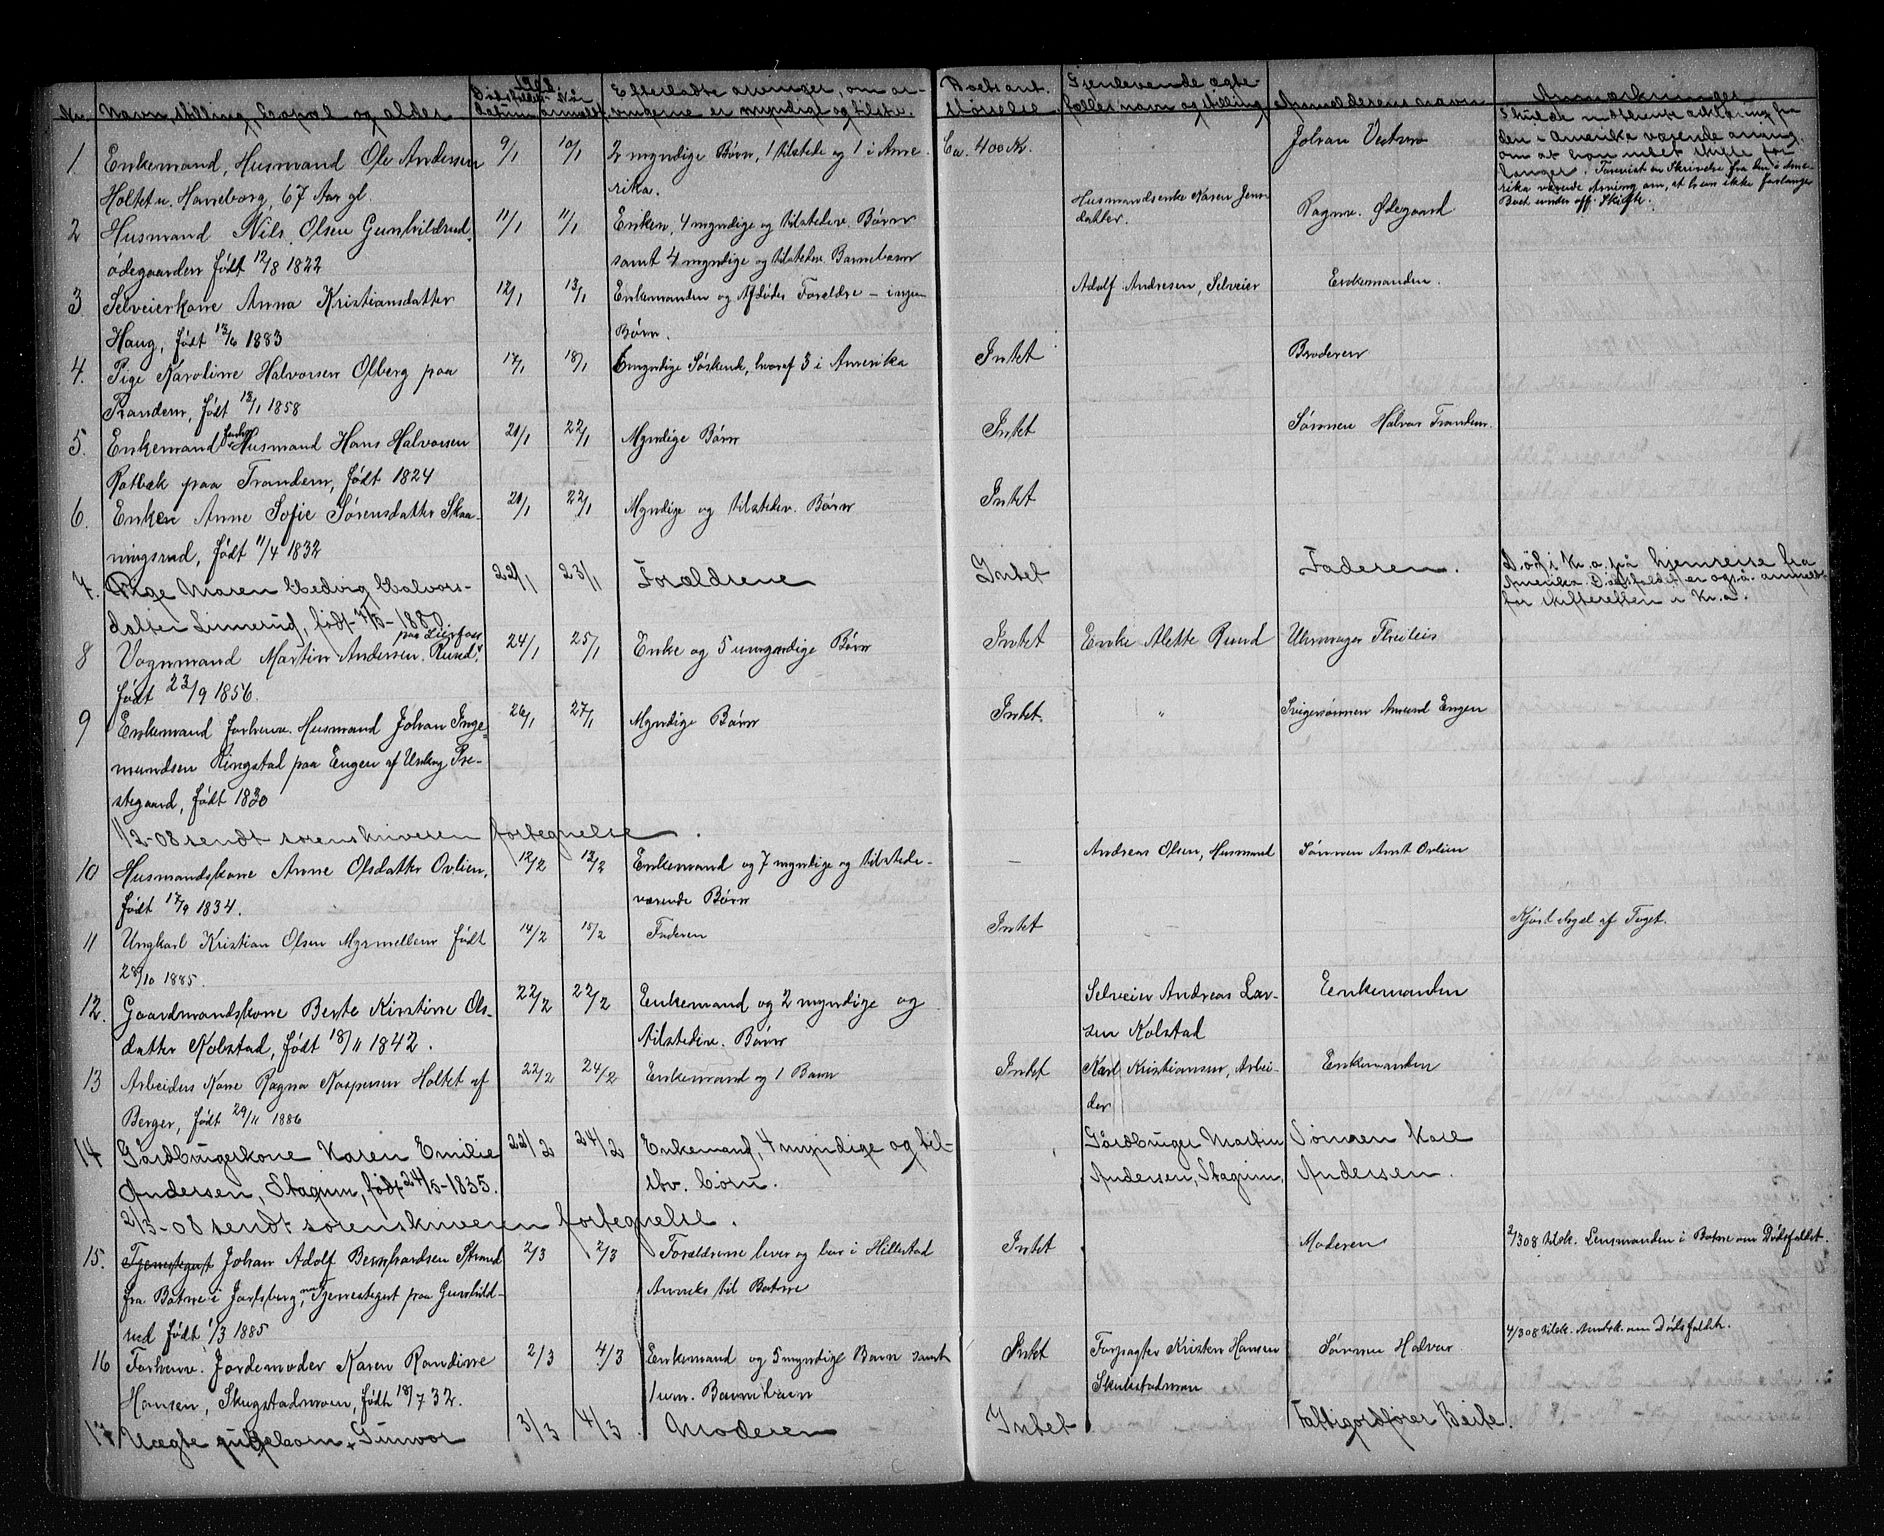 Nr. Navn, stilling, bopæl og alder. 1908 Dødsfaldets datum Når anmeldt. Efterladte arvinger, om arvingerne er myndige og tilstede. Boets ant. størrelse. Gjenlevende ægtefælles navn og stilling Anmelderens navn Anmærkninger
1. Enkemand, Husmand Ole Andersen 9/1 10/1 2 myndige Børn, 1 tilstede og 1 i Ame- Ca. 400 Kr. Johan
Holtet u. Hanneborg, 67 Aar gl. rika.
om at han intet skifte for
langer. Forevist en Skrivelse fra den i Ame-
rika værende Arving om, at hun ikke forlanger
Boet under off. Skifte.
2 Husmand Nils Olsen Gunhildrud- 11/1 11/1 Enken, 4 myndige og tilstedev. Børn Husmandsenke Karen Jens- Ragnv. Ødegaard
ødegaarden født 12/8 1822 samt 4 myndige og tilstedev. Barnebarn datter.
3. Selveierkone Anna Kristiansdatter 12/1 13/1 Enkemanden og Afdødes Forældre – ingen Adolf Andresen, Selveier Enkemanden.
Haug, født 13/6 1883 Børn.
4. Pige Karoline Halvorsen Olberg paa 17/1 18/1 6 myndige Søskende, hvoraf 3 i Amerika Intet Broderen
Trandem, født 13/1 1858
5. Enkemand Husmand Hans Halvorsen 21/1 22/1 Myndige Børn Intet Sønnen Halvor Trandem.
Ratbæk paa Trandem, født 1824
6. Enken Anne Sofie Sørensdatter Skaa- 21/1 22/1 Myndige og tilstedev. Børn Intet
ningsrud, født 11/4 1832
7. Pige Maren Hedvig Halvors- 22/1 23/1 Forældrene Intet Faderen. Død i Kr.a. på hjemreise fra
datter Linnerud, født 1880 Amerika. Dødsfaldet er også anmeldt
for skifteretten i Kr.a.
8 Vognmand Martin Andersen Ruud, paa Lierfoss 24/1 25/1 Enke og 5 umyndige Børn Intet Enke Alette Ruud Uhrmager
født 23/9 1856.
9 Enkemand forhenv. Husmand Johan Inge- 26/1 27/1 Myndige Børn Intet. " Svigersønnen Amund Engen
mundsen Ringstad paa Engen af Urskog Pre-
stegaard, født 1830
1/2-08 sendt sorenskriveren fortegnelse.
10 Husmandskone Anne Olsdatter Ovlien, 12/2 12/2 Enkemand og 7 myndige og tilstede- – Andreas Olsen, Husmand Sønnen Arnt Ovlien
født 17/9 1834. værende Børn
11 Ungkarl Kristian Olsen Myrmellem født 14/2 15/2 Faderen Intet Kjørt ihjæl af Toget.
28/10 1885.
12. Gaardmandskone Berte Kirstine Ols- 22/2 22/2 Enkemand og 2 myndige og Selveier Andreas Lar- Enkemanden
datter Kolstad, født 18/11 1842. tilstedev. Børn sen Kolstad
13 Arbeiders Kone Ragna Kaspersen Holtet af 22/2 24/2 Enkemand og 1 Barn Intet Karl Kristiansen, Arbei- Enkemanden
Berger, født 29/11 1886 der
14 Gårdbrugerkone Karen Emilie 22/2 24/2 Enkemand, 4 myndige og til- Gårdbruger Martin Sønnen Karl
Andersen, Stagrim, født 24/5-1835. stv. børn. Andersen, Stagrim, Andersen.
2/3-08 sendt sorenskriveren fortegnelse.
15. Tjenestegut Johan Adolf Bernhardsen Strand 2/3 2/3 Forældrene lever og bor i Hillestad Intet Moderen 2/3 08 tilsk. Lensmanden i Botne om Dødsfaldet.
fra Botne i Jarlsberg, Tjenestegut paa Gunhild- Anneks til Botne
rud født 1/3 1885
16 Forhenv. Jordemoder Karen Randine 2/3 4/3 Enkemand og 5 myndige Børn samt Intet Forpagter Kristen Hansen Sønnen Halvor 4/3 08 tilsk. Amtsk. om Dødsfaldet.
Hansen, Skugstadmoen, født 18/7 32. 1 um. Barnebarn Skukstadmoen
17 Uægte pigebarn Gunvor 3/3 4/3 Moderen Intet Fattigordfører Beite.